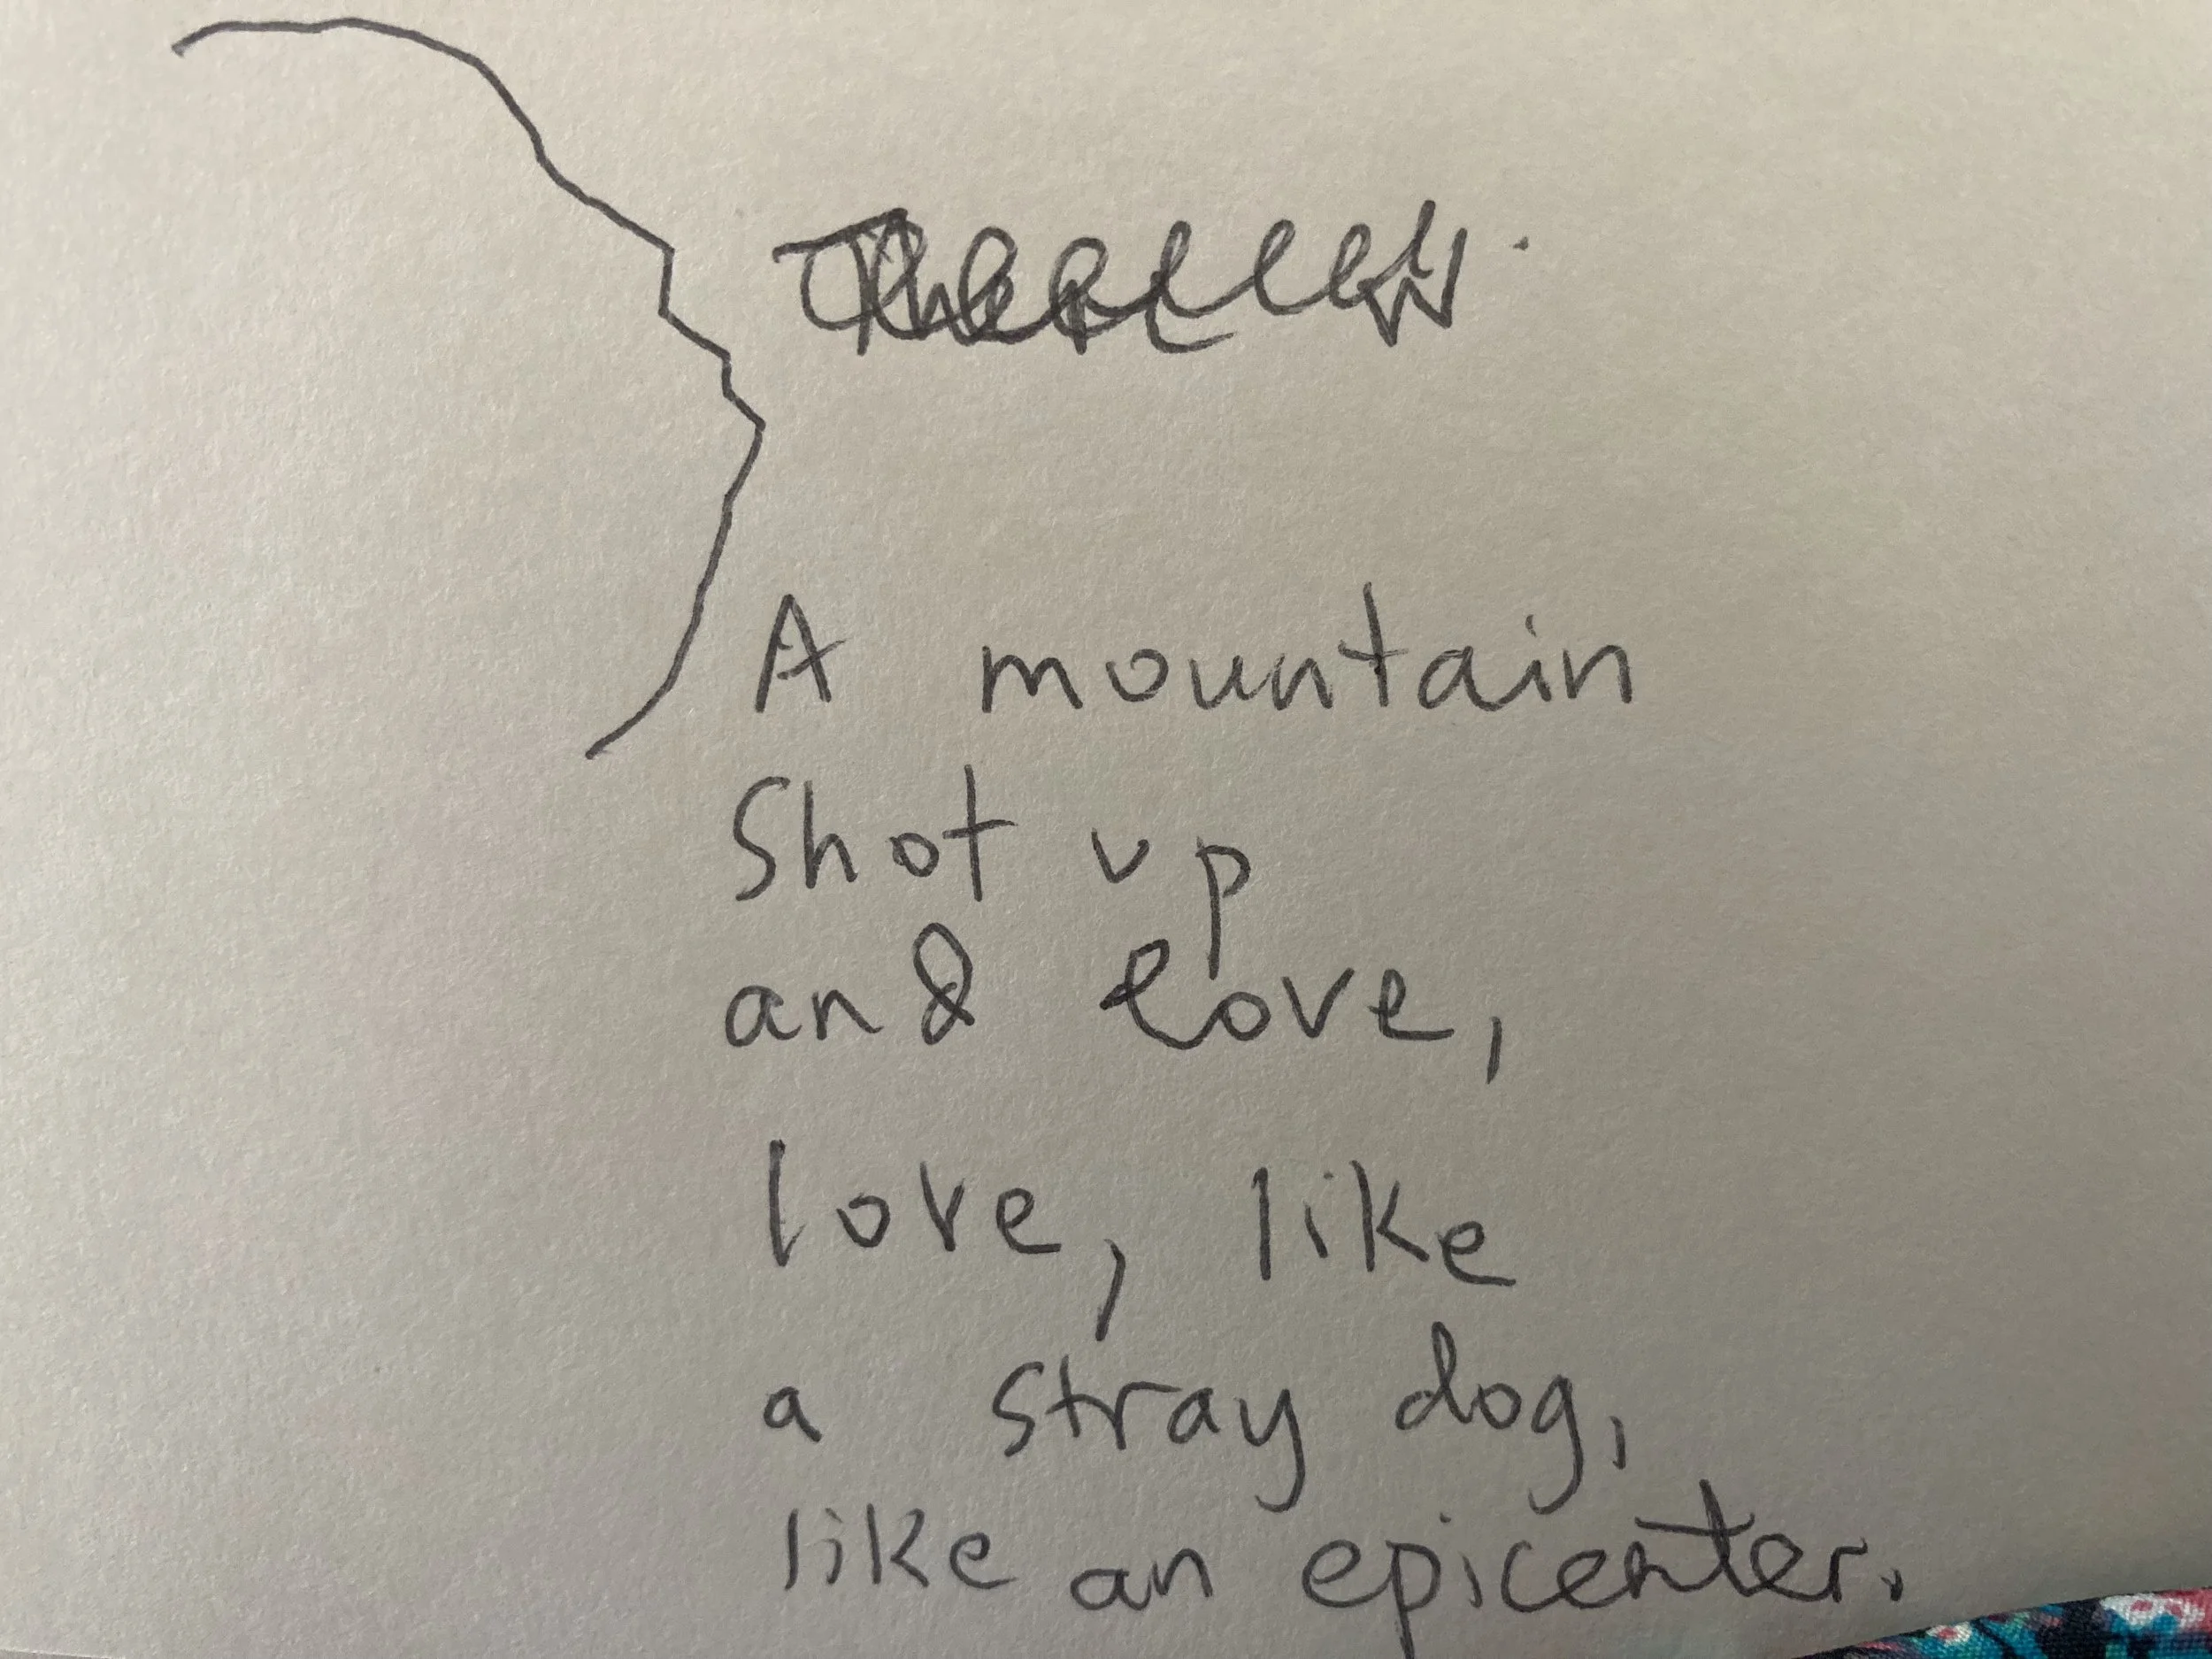 A mountain
Shot up
and love,
love, like
a stray dog,
like an epicenter.